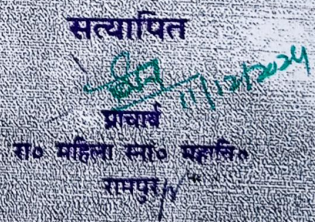 सत्यापित
11/12/2024
प्राचार्य
रा० महिला स्ना० महावि०
रामपुर